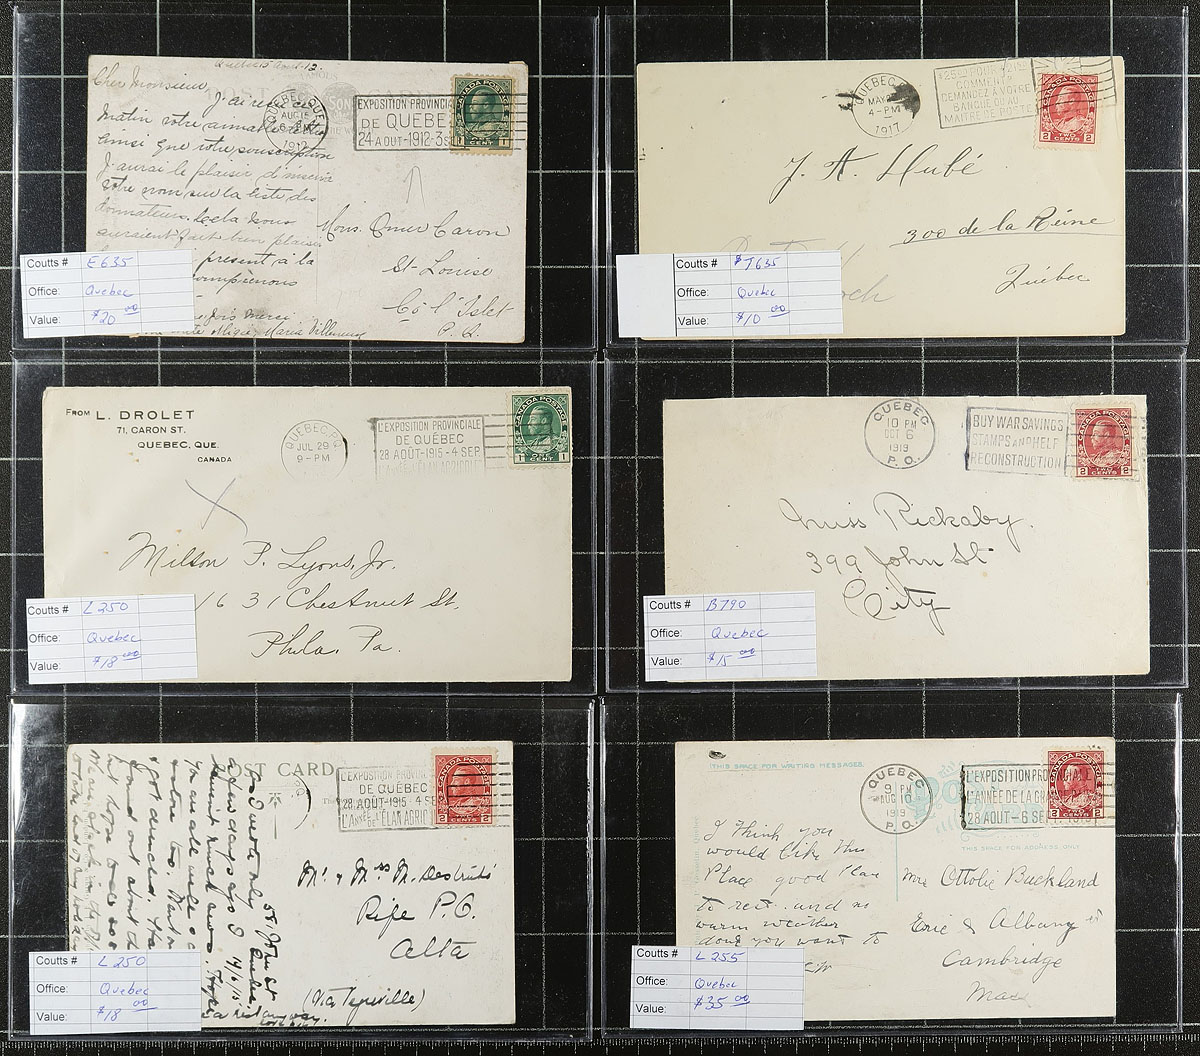 Quebec 15 Aout-12.
Cher Monsieur,
J'ai reçu ce
matin votre aimable lettre
ainsi que votre souscription
J'aurai le plaisir d'inscrire
votre nom sur la liste des
donnateurs. Cela nous
auraient fait bien plaisir
present à la
Merci
QUEBEC QUE
AUG 15
6 PM
1912
EXPOSITION PROVINCIA
DE QUEBEC
24 AOUT-1912-3 S
CANADA POSTAGE
1 CENT 1
Mons. Omer Caron
St-Louise
Co l'Islet
P. Q.
Coutts # E635
Office: Quebec
Value: $20 00
QUEBEC
MAY
4-PM
1917
$25 POUR $21.50
COMMENT?
DEMANDEZ À VOTRE
BANQUE OU AU
MAITRE DE POSTE
CANADA POSTAGE
2 TWO CENTS 2
J. A. Hubé
300 de la Reine
Québec
Coutts # T635
Office: Quebec
Value: $10 00
FROM L. DROLET
71, CARON ST.
QUEBEC, QUE.
CANADA
QUEBEC P.Q.
JUL 29
9-PM
L'EXPOSITION PROVINCIALE
DE QUÉBEC
28 AOÛT-1915-4 SEP
L'ANNÉE DE L'ÉLAN AGRICOLE
CANADA POSTAGE
1 ONE CENT 1
Milson P. Lyons, Jr.
1631 Chestnut St.
Phila. Pa.
Coutts # L250
Office: Quebec
Value: $18 00
QUEBEC
10 PM
OCT 6
1919
P. Q.
BUY WAR SAVINGS
STAMPS AND HELP
RECONSTRUCTION
CANADA POSTAGE
2 TWO CENTS 2
Miss Rickaby.
399 John St
City
Coutts # B790
Office: Quebec
Value: $15 00
POST CARD
L'EXPOSITION PROVINC
DE QUÉBEC
28 AOÛT-1915-4 SE
L'ANNÉE DE L'ÉLAN AGRIC
CANADA POSTAGE
2 CENTS 2
58, John St
Quebec.
14/8/15
So I wrote only
a few days ago I
Mr. & Mrs. M.
Rife P.O.
Alta
Coutts # L250
Office: Quebec
Value: $18 00
THIS SPACE FOR WRITING MESSAGES.
QUEBEC
9 PM
AUG 10
1919
P. Q.
L'EXPOSITION PROVINCIALE
L'ANNÉE DE LA GRA
28 AOUT-6 SEPT. 1919
CANADA POSTAGE
2 TWO CENTS 2
THIS SPACE FOR ADDRESS ONLY
I think you
would like this
place good place
to rest and no
warm weather
dont you want to
Mrs Ottolie Buckland
Erie & Albany st
Cambridge
Mass
Coutts # L255
Office: Quebec
Value: $35 00